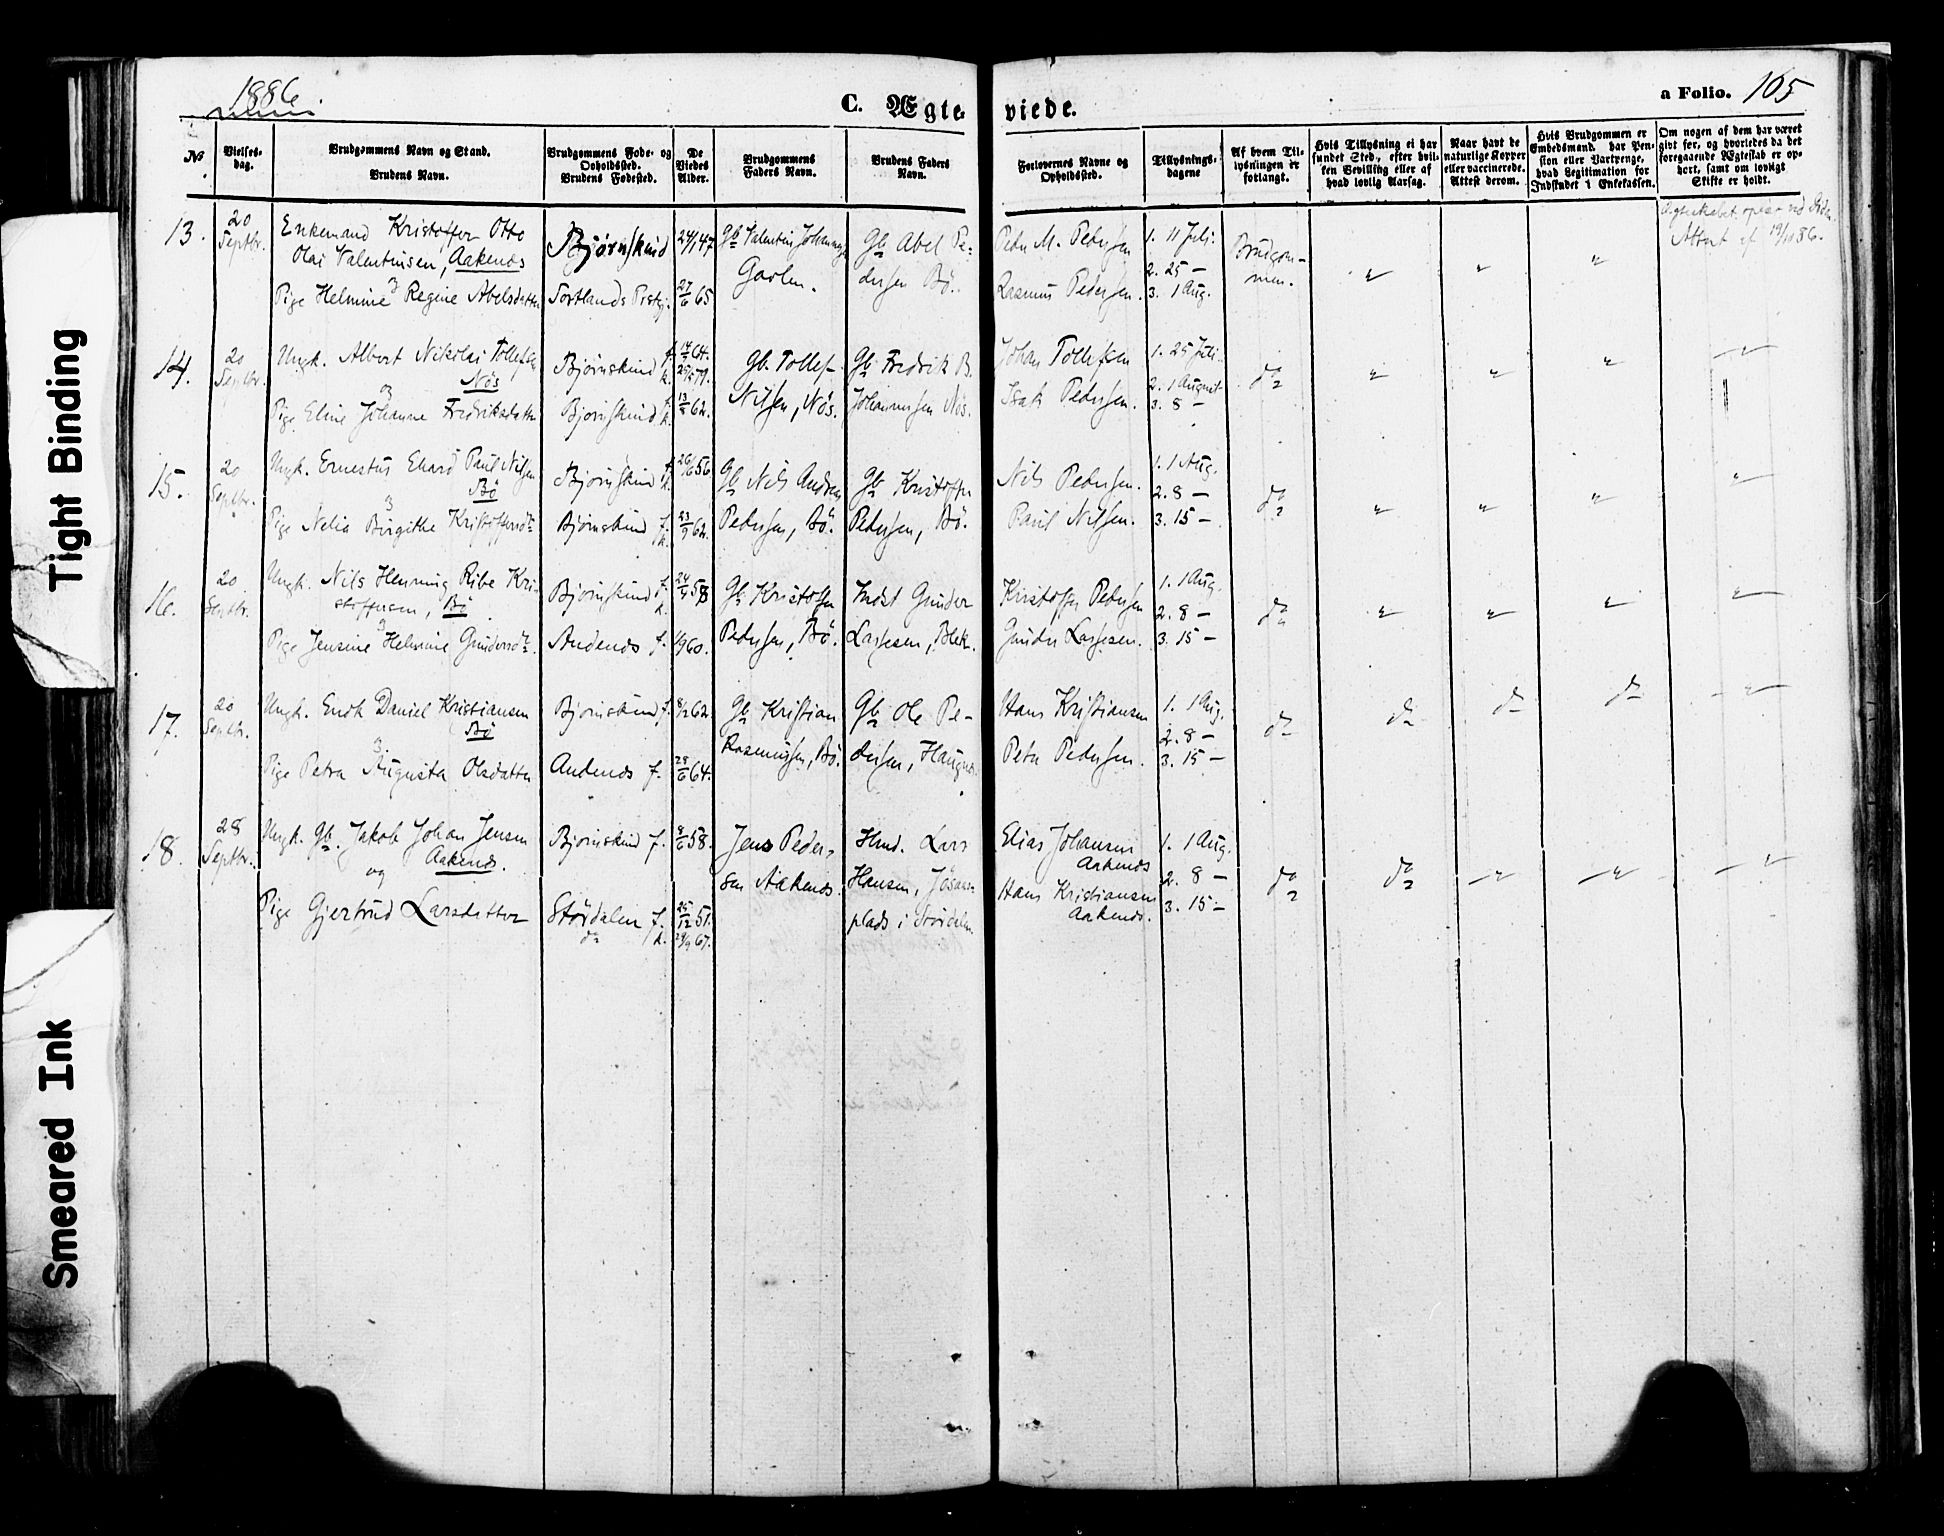 1886
C. Ægteviede.
a Folio. 105
№
Vielsesdag.
Brudgommens Navn og Stand.
Brudens Navn.
Brudgommens Føde- og
Opholdssted.
Brudens Fødested.
De
Viedes
Alder.
Brudgommens
Faders Navn.
Brudens Faders
Navn.
Forlovernes Navne og
Opholdssted.
Tillysnings-
dagene
Af hvem Til-
lysningen er
forlangt.
Hvis Tillysning ei har
fundet Sted, efter hvil-
ken Bevilling eller af
hvad lovlig Aarsag.
Naar havt de
naturlige Kopper
eller vaccinerede.
Attest derom.
Hvis Brudgommen er
Embedsmand, har Pen-
sion eller Vartpenge,
hvad Legitimation for
Indskudet i Enkekassen.
Om nogen af dem har været
givt før, og hvorledes da det
foregaaende Ægteskab er op-
hørt, samt om lovligt
Skifte er holdt.
13. 20 Septbr.
Enkemand Kristoffer Otto
Olai Valentinsen, Aakenes
Pige Helmine Regine Abelsdatter
Bjørnskind
Sortlands Prstgj.
24/1 47
27/6 65
Gb Valentin Johannes
Gavlen.
Gb Abel Pe-
dersen Bø.
Peder M. Pedersen
Rasmus Pedersen.
1. 11 Juli.
2. 25 —
3. 1 Aug.
Brudgom-
men.
" " "
Attest af 19/ 86.
14. 20 Septbr.
Ungk. Albert Nikolai Tollefsen
Nøs
Pige Eline Johanne Fredriksdatter
Bjørnskind f. k.
Bjørnskind f. k.
64.
79.
13/ 62.
Gb. Tollef
Nilsen, Nøs.
Gb Fredrik B.
Johannessen Nøs.
Johan Tollefsen
Isak Pedersen.
1. 25 Juli.
2. 1 August
3. 8 —
do
" " " "
15. 20 Septbr.
Ungk. Ernestus Edvard Paul Nilsen
Bø
Pige Nelia Birgithe Kristoffersdtr
Bjørnskind f. k.
Bjørnskind f. k.
26/6 56
23/9 62.
Gb Nils Andreas
Pedersen, Bø.
Gb Kristoffer
Pedersen, Bø.
Nils Pedersen.
Paul Nilsen.
1. 1 Aug.
2. 8 —
3. 15 —
do
" " " "
16. 20 Septbr.
Ungk. Nils Henning Ribe Kri-
stoffersen, Bø
Pige Jensine Helmine Gundersdtr.
Bjørnskind f. k.
Andenes f.
24/9 58
/9 60.
Gb Kristoffer
Pedersen, Bø.
Indst Gunder
Lassesen, Blek.
Kristoffer Pedersen
Gunder Lassesen.
1. 1 Aug.
2. 8 —
3. 15 —
do
" " " "
17. 20 Septbr.
Ungk. Enok Daniel Kristiansen
Bø
Pige Petra Augusta Olsdatter
Bjørnskind f.
Andenes f.
8/2 62.
28/6 64.
Gb Kristian
Rasmussen, Bø.
Gb Ole Pe-
dersen, Haugnes.
Hans Kristiansen
Peter Pedersen.
1. 1 Aug.
2. 8 —
3. 15 —
do do do do "
18. 28 Septbr.
Ungk. Gb. Jakob Johan Jensen
Aakenes.
og
Pige Gjertrud Larsdatter
Bjørnskind f.
Størdalen f.
do k.
8/6 58.
25/12 51.
29/9 67.
Jens Peder-
sen Aakenes
Hmd. Lars
Hansen,
plads i Størdalen
Elias Johansen
Aakenes
Hans Kristiansen
Aakenes.
1. 1 Aug.
2. 8 —
3. 15 —
do do " " "
Tight Binding
Smeared Ink